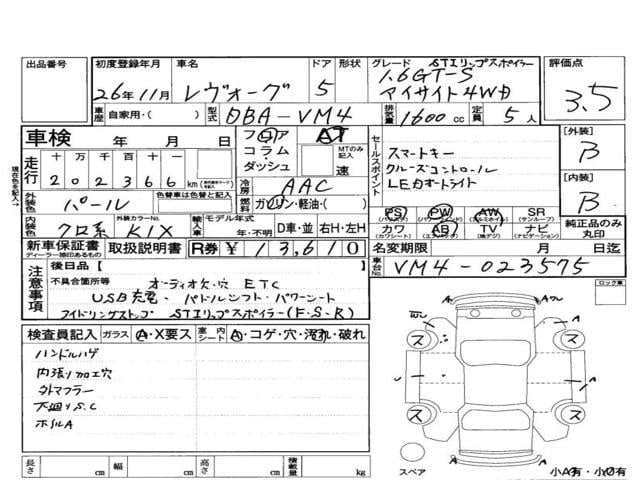 出品番号
初度登録年月 26年11月
車名 レヴォーグ
ドア 5
形状
グレード STIリップスポイラー
1.6GT-S
アイサイト4WD
評価点 3.5
車歴 自家用・( )
型式 DBA-VM4
排気量 1600 cc
定員 5 人
車検 年 月 日
フロア AT
コラム MTのみ記入
ダッシュ 速
セールスポイント
スマートキー
クルーズコントロール
LEDオートライト
[外装] B
[内装] B
走行 十 万 千 百 十
202366 km
冷房 AAC
外装色 パール
色替車は色替と記入
燃料 ガソリン・軽油・( )
内装色 クロ系
外装カラーNo. K1X
輸入車 モデル年式 年・不明 D車・並 右H・左H
PS PW AW SR (サンルーフ)
カワ (カワシート) AB TV (地デジ) ナビ (ナビゲーション)
純正品のみ丸印
新車保証書 ディーラー捺印あるもの
取扱説明書
R券 ¥13,610
名変期限 月 日迄
注意事項
後日品【 】
不具合箇所等 オーディオ欠・穴 ETC
USB充電・パドルシフト・パワーシート
アイドリングストップ STIリップスポイラー(F・S・R)
車台No. VM4-023575
ロック車
検査員記入 ガラス A・X要ス 室内シート A・コゲ・穴・汚れ・破れ
ハンドルハゲ
内張り加工穴
外マフラー
下廻りS.C
ホイルA
ス ス
ス ス
A
スペア
小A有・小U有
長さ cm 幅 cm 高さ cm 積載量 kg
現在色を記入→